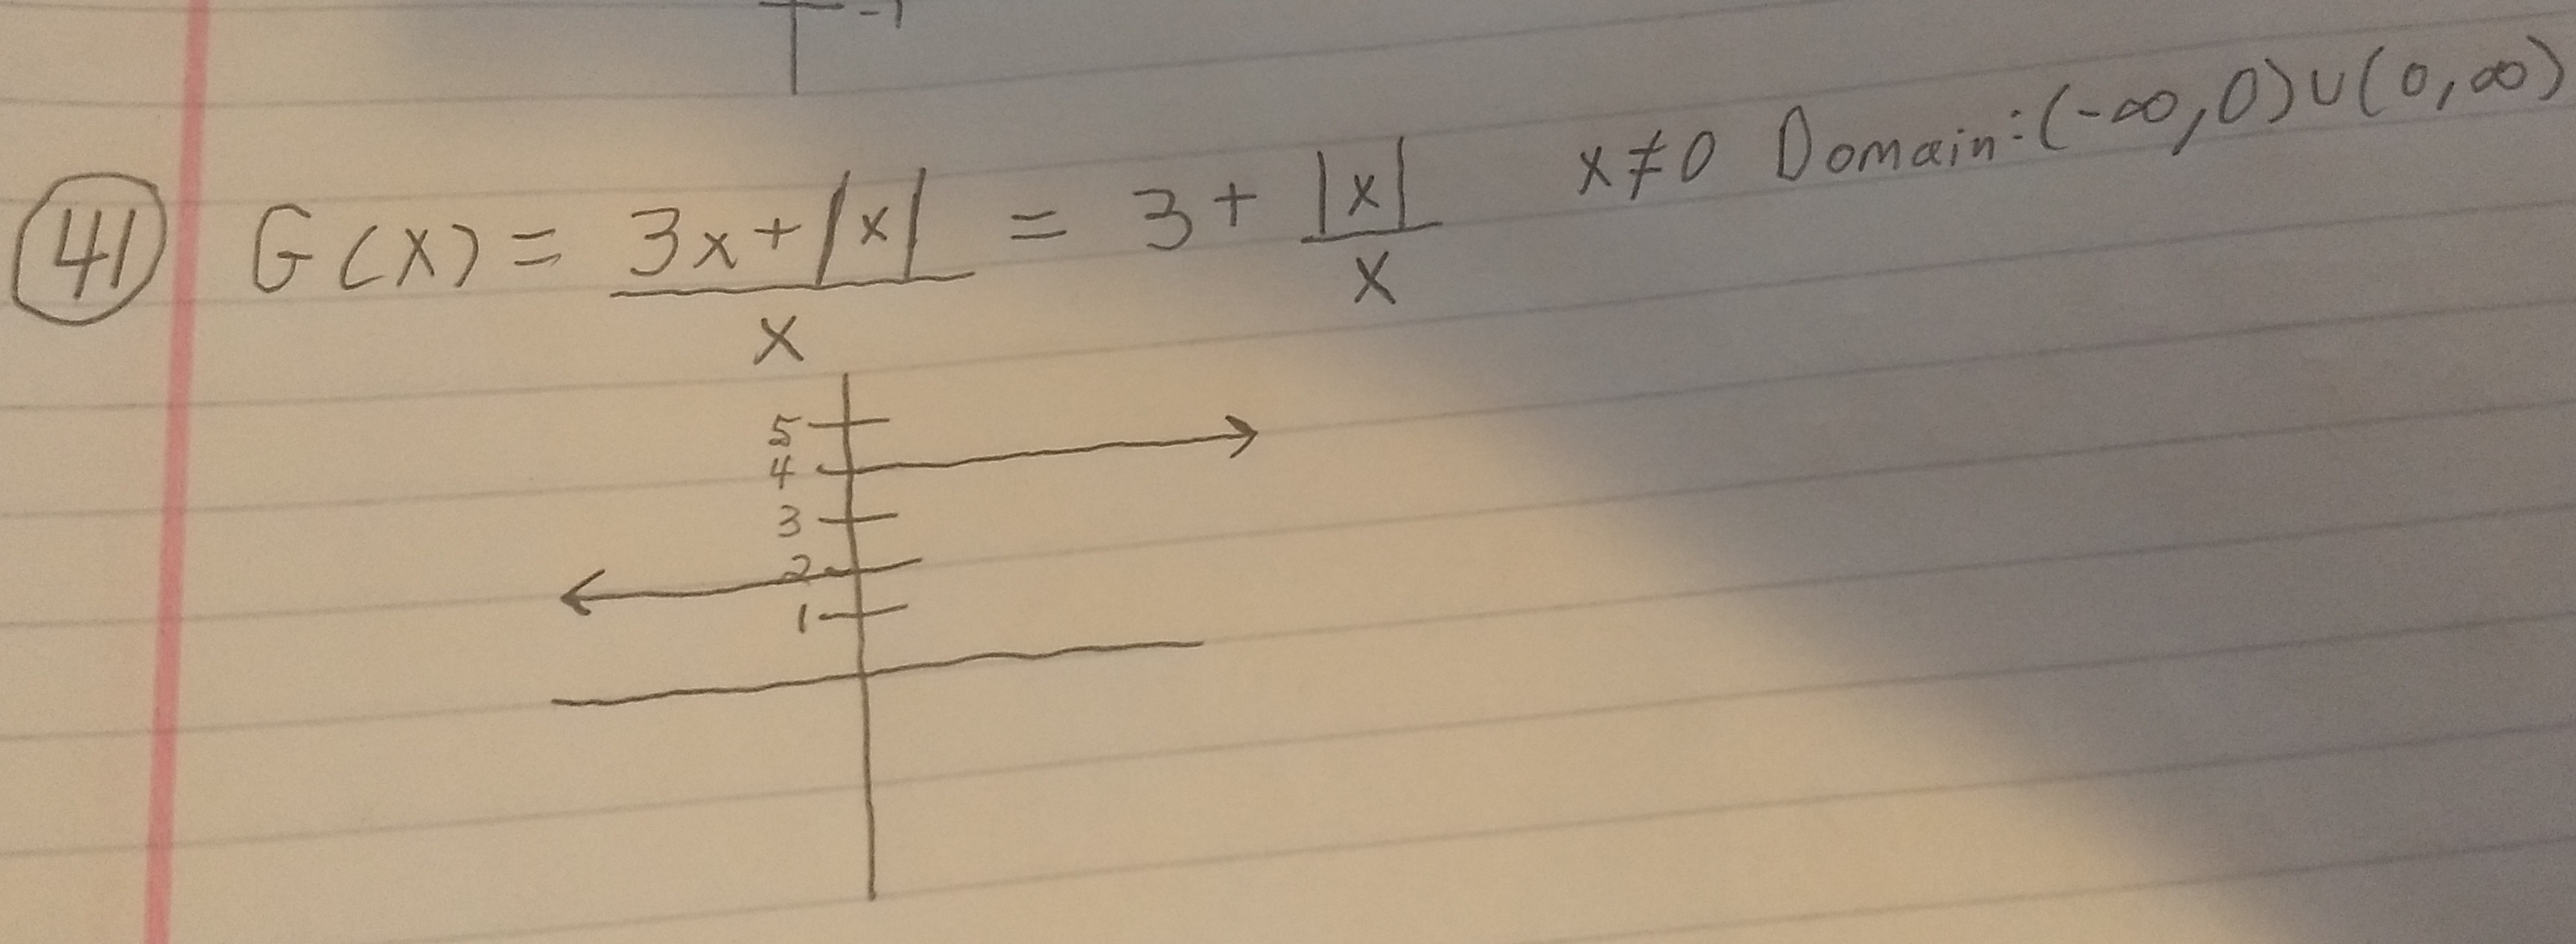 -1
41 G(x) = (3x+|x|)/x = 3 + |x|/x x≠0 Domain:(-∞,0)∪(0,∞)
5
4
3
2
1